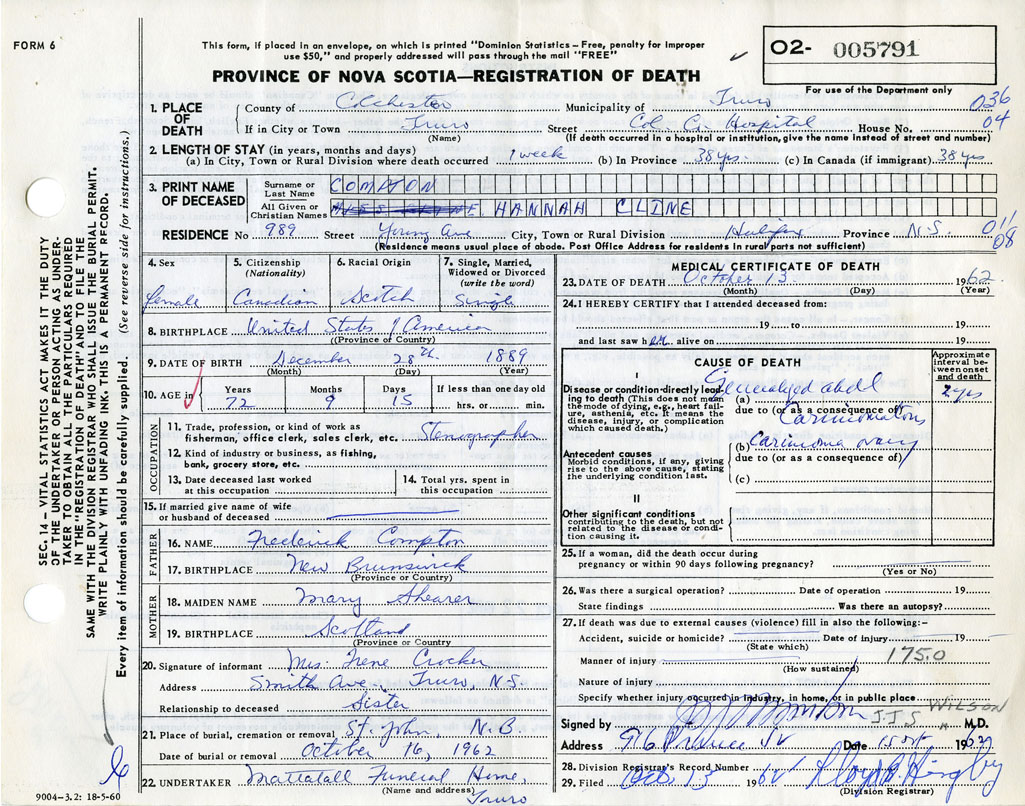 FORM 6
This form, if placed in an envelope, on which is printed "Dominion Statistics – Free, penalty for improper
use $50," and properly addressed will pass through the mail "FREE"
02- 005791
PROVINCE OF NOVA SCOTIA—REGISTRATION OF DEATH
For use of the Department only
1. PLACE OF DEATH
County of Colchester Municipality of Truro 036
If in City or Town Truro Street Col. Co. Hospital House No. 04
(Name) (If death occurred in a hospital or institution, give the name instead of street and number)
2. LENGTH OF STAY (in years, months and days)
(a) In City, Town or Rural Division where death occurred 1 week (b) In Province 38 yrs. (c) In Canada (if immigrant) 38 yrs
3. PRINT NAME OF DECEASED
Surname or Last Name COMPTON
All Given or Christian Names HANNAH CLINE
RESIDENCE No 989 Street Young Ave City, Town or Rural Division Halifax Province N.S. 011 08
(Residence means usual place of abode. Post Office Address for residents in rural parts not sufficient)
4. Sex
female
5. Citizenship (Nationality)
Canadian
6. Racial Origin
Scotch
7. Single, Married, Widowed or Divorced (write the word)
Single
8. BIRTHPLACE United States of America
(Province or Country)
9. DATE OF BIRTH December 28th 1889
(Month) (Day) (Year)
10. AGE in Years Months Days If less than one day old
72 9 15 hrs. or min.
OCCUPATION
11. Trade, profession, or kind of work as
fisherman, office clerk, sales clerk, etc. Stenographer
12. Kind of industry or business, as fishing,
bank, grocery store, etc.
13. Date deceased last worked
at this occupation
14. Total yrs. spent in
this occupation
15. If married give name of wife
or husband of deceased
FATHER
16. NAME Frederick Compton
17. BIRTHPLACE New Brunswick
(Province or Country)
MOTHER
18. MAIDEN NAME Mary Shearer
19. BIRTHPLACE Scotland
(Province or Country
20. Signature of informant Mrs. Irene Crocker
Address Smith Ave. Truro, N.S.
Relationship to deceased Sister
21. Place of burial, cremation or removal St. John, N.B.
Date of burial or removal October 16, 1962
22. UNDERTAKER Mattatall Funeral Home,
(Name and address) Truro
MEDICAL CERTIFICATE OF DEATH
23. DATE OF DEATH October 13 1962
(Month) (Day) (Year)
24. I HEREBY CERTIFY that I attended deceased from:
19 to 19
and last saw her alive on 19
CAUSE OF DEATH
Approximate interval between onset and death
I
Disease or condition directly leading to death (This does not mean the mode of dying, e.g., heart failure, asthenia, etc. It means the disease, injury, or complication which caused death.)
(a) Generalized abdl
due to (or as a consequence of)
Carcinomatosis
2 yrs
(b) Carcinoma ovary
due to (or as a consequence of)
(c)
Antecedent causes
Morbid conditions, if any, giving
rise to the above cause, stating
the underlying condition last.
II
Other significant conditions
contributing to the death, but not
related to the disease or condition
causing it.
25. If a woman, did the death occur during
pregnancy or within 90 days following pregnancy?
(Yes or No)
26. Was there a surgical operation? Date of operation 19
State findings Was there an autopsy?
27. If death was due to external causes (violence) fill in also the following:-
Accident, suicide or homicide? Date of injury 19
(State which)
Manner of injury 175.0
(How sustained)
Nature of injury
Specify whether injury occurred in industry, in home, or in public place
Signed by J.J.S WILSON M.D.
Address 916 Prince St Date 15 1962
28. Division Registrar's Record Number
29. Filed Oct. 13 1962
(Division Registrar)
SEC. 14 – VITAL STATISTICS ACT MAKES IT THE DUTY
OF THE UNDERTAKER OR PERSON ACTING AS UNDER-
TAKER TO OBTAIN ALL THE PARTICULARS REQUIRED
IN THE "REGISTRATION OF DEATH" AND TO FILE THE
SAME WITH THE DIVISION REGISTRAR WHO SHALL ISSUE THE BURIAL PERMIT.
WRITE PLAINLY WITH UNFADING INK. THIS IS A PERMANENT RECORD.
Every item of information should be carefully supplied (See reverse side for instructions.)
9004–3.2: 18-5-60